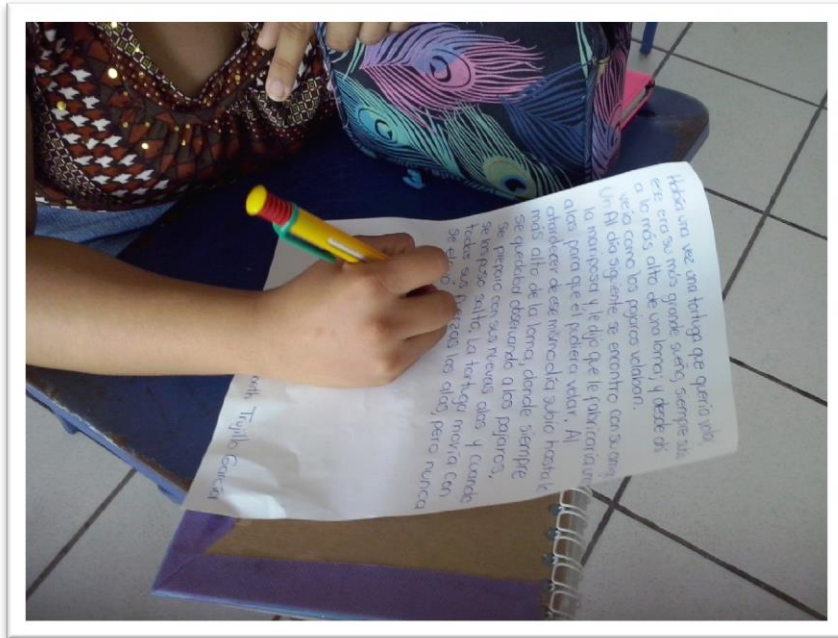 Había una vez una tortuga que quería vola
ese era su más grande sueño, siempre
a lo más alto de una loma, y desde ahí
veía como los pajaros volaban.
Un Al día siguiente se encontro con su
la mariposa y le dijo que le fabricaría
alas para que él pudiera volar. Al
atardecer de ese mismo día subio hasta lo
más alto de la loma, donde siempre
se quedaba observando a los pajaros,
se preparo con sus nuevas alas y cuando
se las puso salto, la tortuga movía con
todas sus las alas, pero nunca
se
Trujillo García